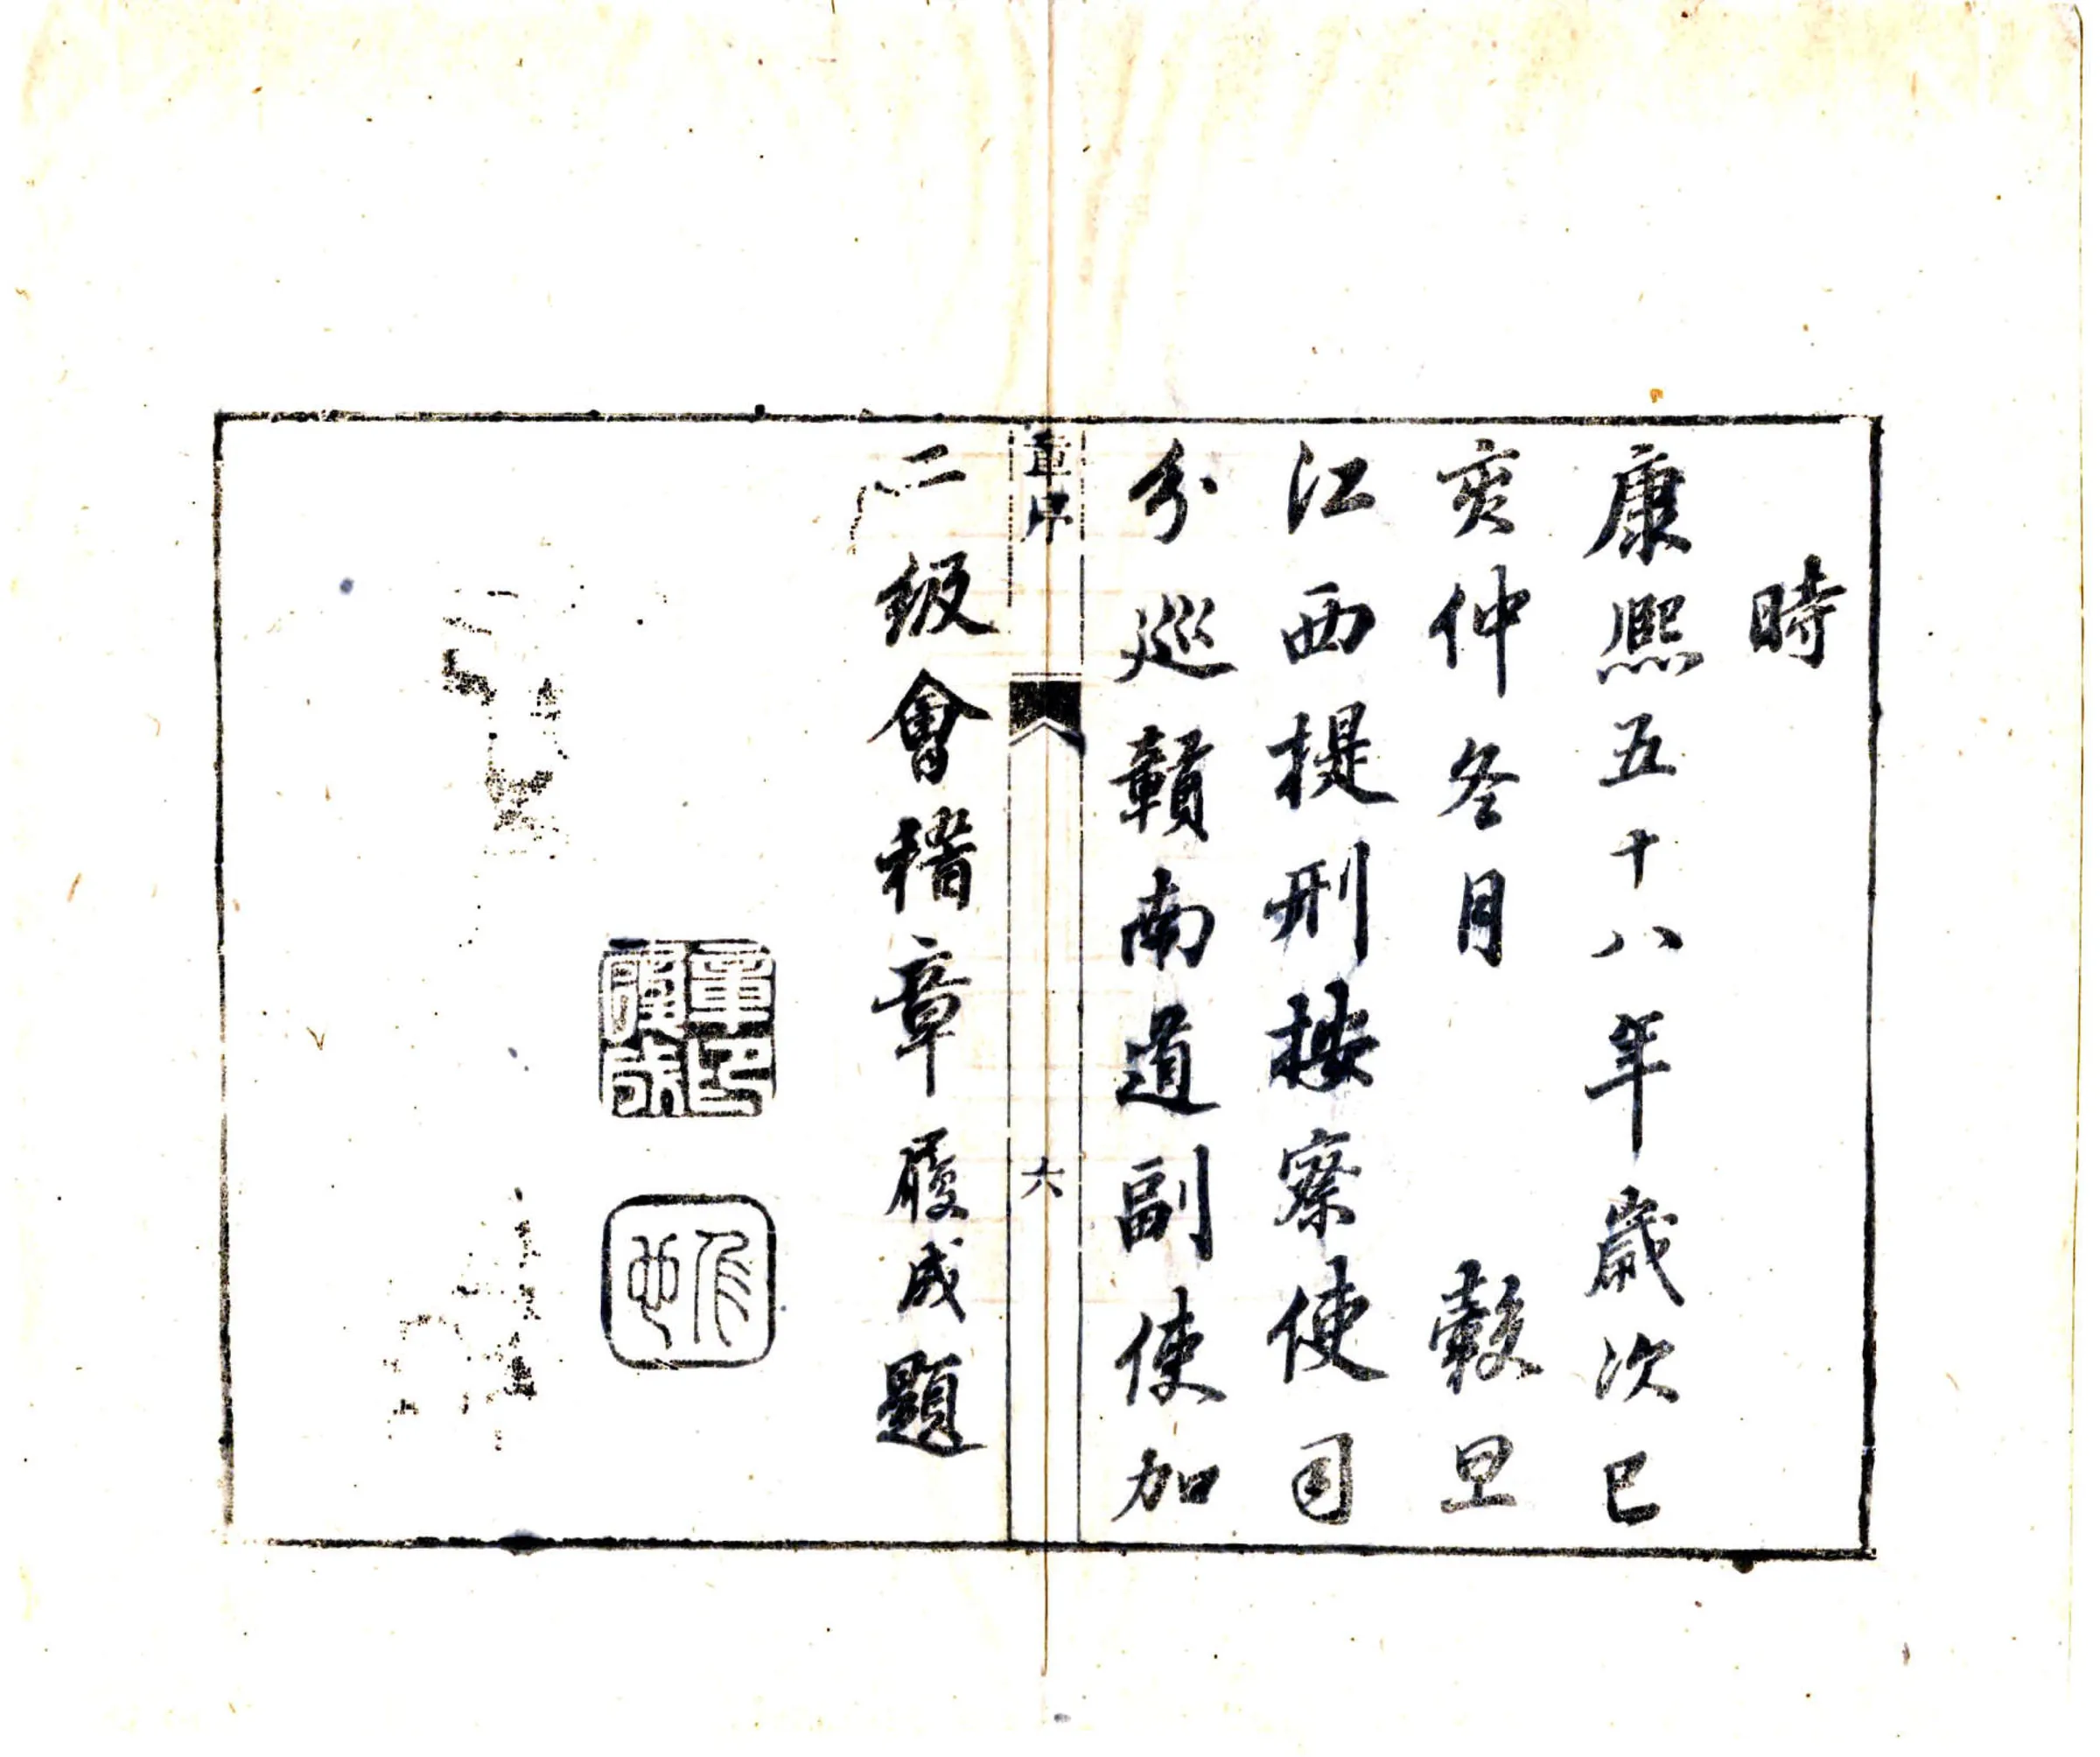 時
康熙五十八年歲次己
亥仲冬月 穀旦
江西提刑按察使司
分巡贛南道副使加
章序 六
二級會稽章履成題
章印履成